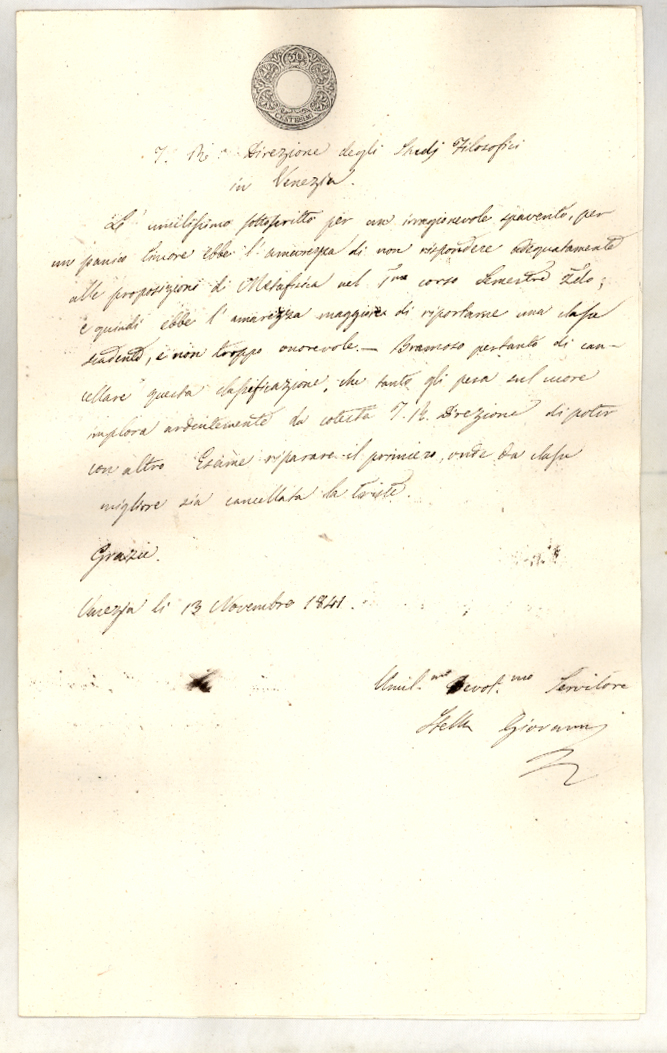 30
CENTESIMI
I. R. Direzione degli Studj Filosofici
in Venezia.
L' umilissimo sottoscritto per un irragionevole spavento, per
un panico timore ebbe l' amarezza di non rispondere adeguatamente
alle proposizioni di Metafisica nel corso Semestre
e quindi ebbe l' amarezza maggiore di riportarne una classe
scadente, e non troppo onorevole. — Bramoso pertanto di can-
cellare questa classificazione, che tanto gli pesa sul cuore
implora ardentemente da cotesta I. R. Direzione di poter
con altro Esame riparare il primiero, onde da classe
migliore sia cancellata la triste.
Grazie.
Venezia li 13 Novembre 1841.
Umil.mo Devot.mo Servitore
Stella Giovanni